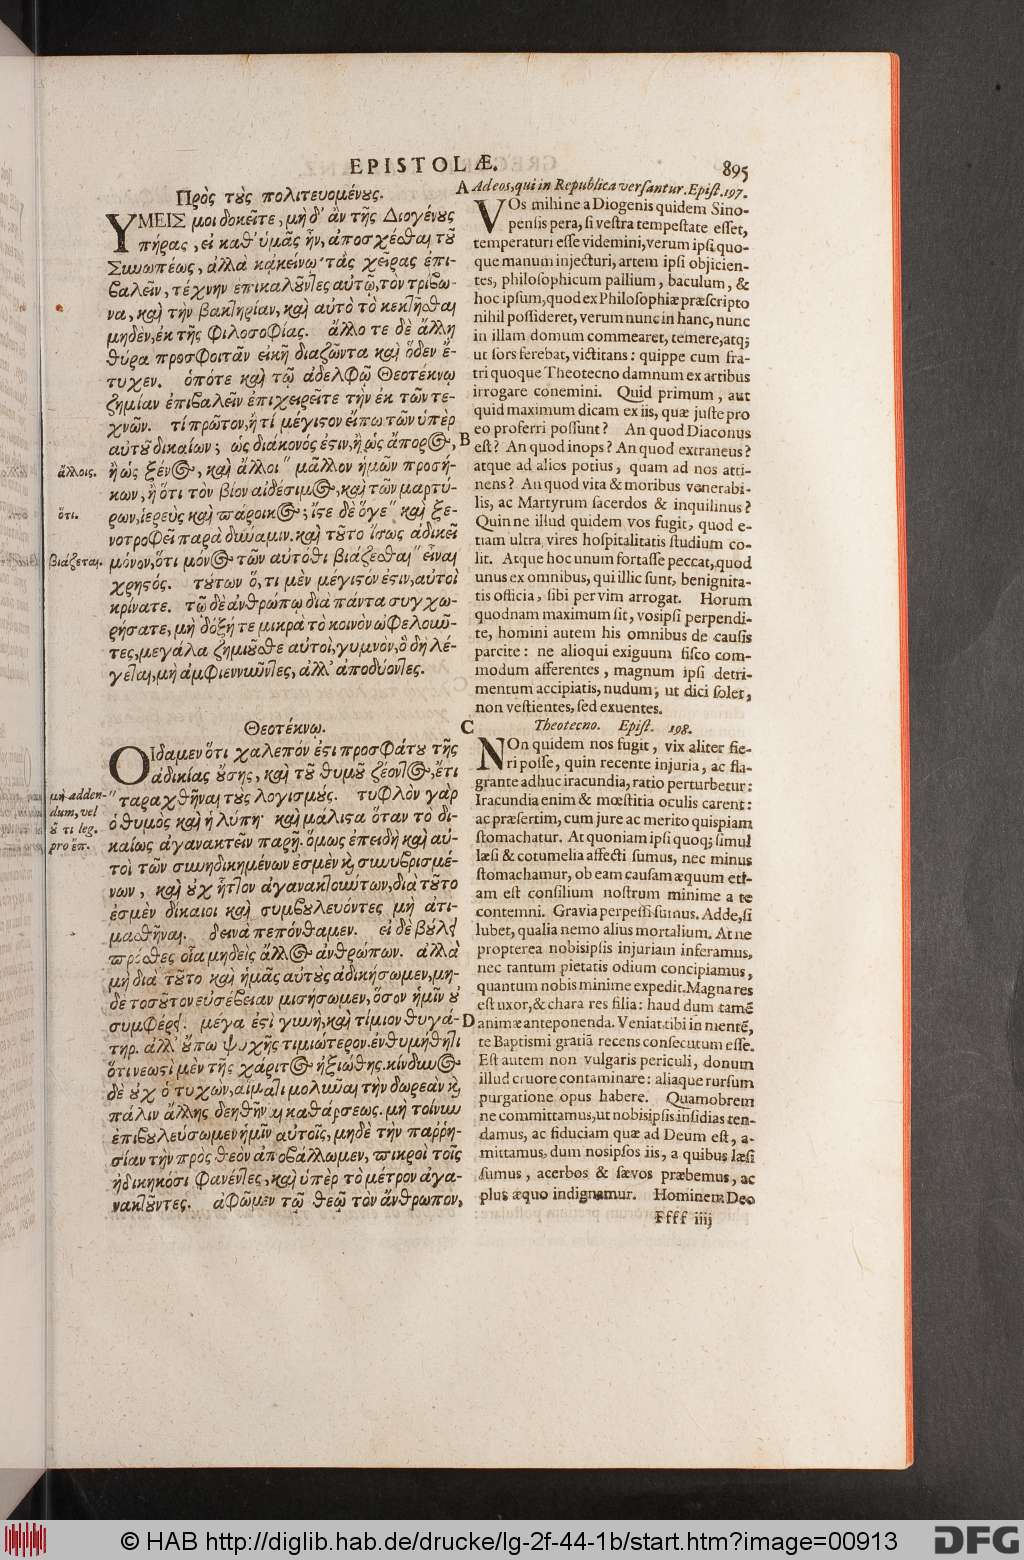 EPISTOLÆ.
895
Πρὸς τοὺς πολιτευομένους.
ΥΜΕΙΣ μοι δοκεῖτε, μὴ δ' ἂν τῆς Διογένους
πήρας, εἰ καθ' ὑμᾶς ἦν, ἀποσχέσθαι τοῦ
Σινωπέως, ἀλλὰ κἀκείνῳ τὰς χεῖρας ἐπι-
βαλεῖν, τέχνην ἐπικαλοῦντες αὐτῷ, τὸν τρίβω-
να, καὶ τὴν βακτηρίαν, καὶ αὐτὸ τὸ κεκτῆσθαι
μηδὲν, ἐκ τῆς φιλοσοφίας. ἄλλοτε δὲ ἄλλῃ
θύρα προσφοιτᾶν εἰκῆ διαζῶντα καὶ ὅδεν ἔ-
τυχεν. ὁπότε καὶ τῷ ἀδελφῷ Θεοτέκνῳ
ζημίαν ἐπιβαλεῖν ἐπιχειρεῖτε τὴν ἐκ τῶν τε-
χνῶν. τί πρῶτον, ἢ τί μέγιστον εἴπω τῶν ὑπὲρ
αὐτοῦ δικαίων; ὡς διάκονός ἐστιν, ἢ ὡς ἄπορος,
ἢ ὡς ξένος, καὶ ἄλλοι" μᾶλλον ἡμῶν προσή-
κων, ἢ ὅτι τὸν βίον αἰδέσιμος, καὶ τῶν μαρτύ-
ρων, ἱερεὺς καὶ πάροικος; ἴστε δὲ ὅγε" καὶ ξε-
νοτροφεῖ παρὰ δύναμιν. καὶ τοῦτο ἴσως ἀδικεῖ
μόνον, ὅτι μόνος τῶν αὐτόθι βιάζεσθαι" εἶναι
χρηστός. τούτων ὅ, τι μὲν μέγιστον ἐστιν, αὐτοὶ
κρίνατε. τῷ δὲ ἀνθρώπῳ διὰ πάντα συγχω-
ρήσατε, μὴ δόξητε μικρὰ τὸ κοινὸν ὠφελοῦν-
τες, μεγάλα ζημιοῦσθε αὐτοὶ, γυμνὸν, ὃ δὴ λέ-
γεται, μὴ ἀμφιεννῦντες, ἀλλ' ἀποδύοντες.
ἄλλοις.
ὅτι.
βιάζεται.
Θεοτέκνῳ.
ΟΙδαμεν ὅτι χαλεπόν ἐστι προσφάτου τῆς
ἀδικίας οὔσης, καὶ τοῦ θυμοῦ ζέοντος, ἔτι
" ταραχθῆναι τοὺς λογισμούς. τυφλὸν γάρ
ὁ θυμὸς καὶ ἡ λύπη· καὶ μάλιστα ὅταν τὸ δι-
καίως ἀγανακτεῖν παρῇ. ὅμως ἐπειδὴ καὶ αὐ-
τοὶ τῶν συνηδικημένων ἐσμὲν καὶ συνυβρισμέ-
νων, καὶ οὐχ ἧττον ἀγανακτούντων, διὰ τοῦτο
ἐσμὲν δίκαιοι καὶ συμβουλεύοντες μὴ ἀτι-
μασθῆναι. δεινὰ πεπόνθαμεν. εἰ δὲ βούλει
πρόσθες οἷα μηδεὶς ἄλλος ἀνθρώπων. ἀλλὰ
μὴ διὰ τοῦτο καὶ ἡμᾶς αὐτοὺς ἀδικήσωμεν, μη-
δὲ τοσοῦτον εὐσέβειαν μισήσωμεν, ὅσον ἡμῖν οὐ
συμφέρει. μέγα ἐστὶ γυνὴ, καὶ τίμιον θυγά-
τηρ. ἀλλ' οὔπω ψυχῆς τιμιώτερον. ἐνθυμήθητι
ὅτι νεωστὶ μὲν τῆς χάριτος ἠξιώθης. κίνδυνος
δὲ οὐχ ὁ τυχὼν, αἵματι μολῦναι τὴν δωρεὰν καὶ
πάλιν ἄλλης δεηθῆναι καθάρσεως. μὴ τοίνυν
ἐπιβουλεύσωμεν ἡμῖν αὐτοῖς, μηδὲ τὴν παῤῥη-
σίαν τὴν πρὸς θεὸν ἀποβάλλωμεν, πικροὶ τοῖς
ἠδικηκόσι φανέντες, καὶ ὑπὲρ τὸ μέτρον ἀγα-
νακτοῦντες. ἀφῶμεν τῷ θεῷ τὸν ἄνθρωπον,
μὴ adden-
dum, vel
οὔ τι leg.
pro ἔτι.
A Ad eos, qui in Republica versantur. Epist. 197.
VOs mihi ne a Diogenis quidem Sino-
pensis pera, si vestra tempestate esset,
temperaturi esse videmini, verum ipsi quo-
que manum injecturi, artem ipsi objicien-
tes, philosophicum pallium, baculum, &
hoc ipsum, quod ex Philosophiæ præscripto
nihil possideret, verum nunc in hanc, nunc
in illam domum commearet, temere, atq;
ut sors ferebat, victitans: quippe cum fra-
tri quoque Theotecno damnum ex artibus
irrogare conemini. Quid primum, aut
quid maximum dicam ex iis, quæ juste pro
eo proferri possunt? An quod Diaconus
B est? An quod inops? An quod extraneus?
atque ad alios potius, quam ad nos atti-
nens? An quod vita & moribus venerabi-
lis, ac Martyrum sacerdos & inquilinus?
Quin ne illud quidem vos fugit, quod e-
tiam ultra vires hospitalitatis studium co-
lit. Atque hoc unum fortasse peccat, quod
unus ex omnibus, qui illic sunt, benignita-
tis officia, sibi per vim arrogat. Horum
quodnam maximum sit, vosipsi perpendi-
te, homini autem his omnibus de causis
parcite: ne alioqui exiguum fisco com-
modum afferentes, magnum ipsi detri-
mentum accipiatis, nudum, ut dici solet,
non vestientes, sed exuentes.
C Theotecno. Epist. 198.
NOn quidem nos fugit, vix aliter fie-
ri posse, quin recente injuria, ac fla-
grante adhuc iracundia, ratio perturbetur:
Iracundia enim & mœstitia oculis carent:
ac præsertim, cum jure ac merito quispiam
stomachatur. At quoniam ipsi quoq; simul
læsi & cotumelia affecti sumus, nec minus
stomachamur, ob eam causam æquum eti-
am est consilium nostrum minime a te
contemni. Gravia perpessi sumus. Adde, si
lubet, qualia nemo alius mortalium. At ne
propterea nobisipsis injuriam inferamus,
nec tantum pietatis odium concipiamus,
quantum nobis minime expedit. Magna res
est uxor, & chara res filia: haud dum tamē
D animæ anteponenda. Veniat tibi in mentē,
te Baptismi gratiā recens consecutum esse.
Est autem non vulgaris periculi, donum
illud cruore contaminare: aliaque rursum
purgatione opus habere. Quamobrem
ne committamus, ut nobisipsis insidias ten-
damus, ac fiduciam quæ ad Deum est, a-
mittamus, dum nosipsos iis, a quibus læsi
sumus, acerbos & sævos præbemus, ac
plus æquo indignamur. Hominem Deo
Ffff iiij
© HAB http://diglib.hab.de/drucke/lg-2f-44-1b/start.htm?image=00913
DFG